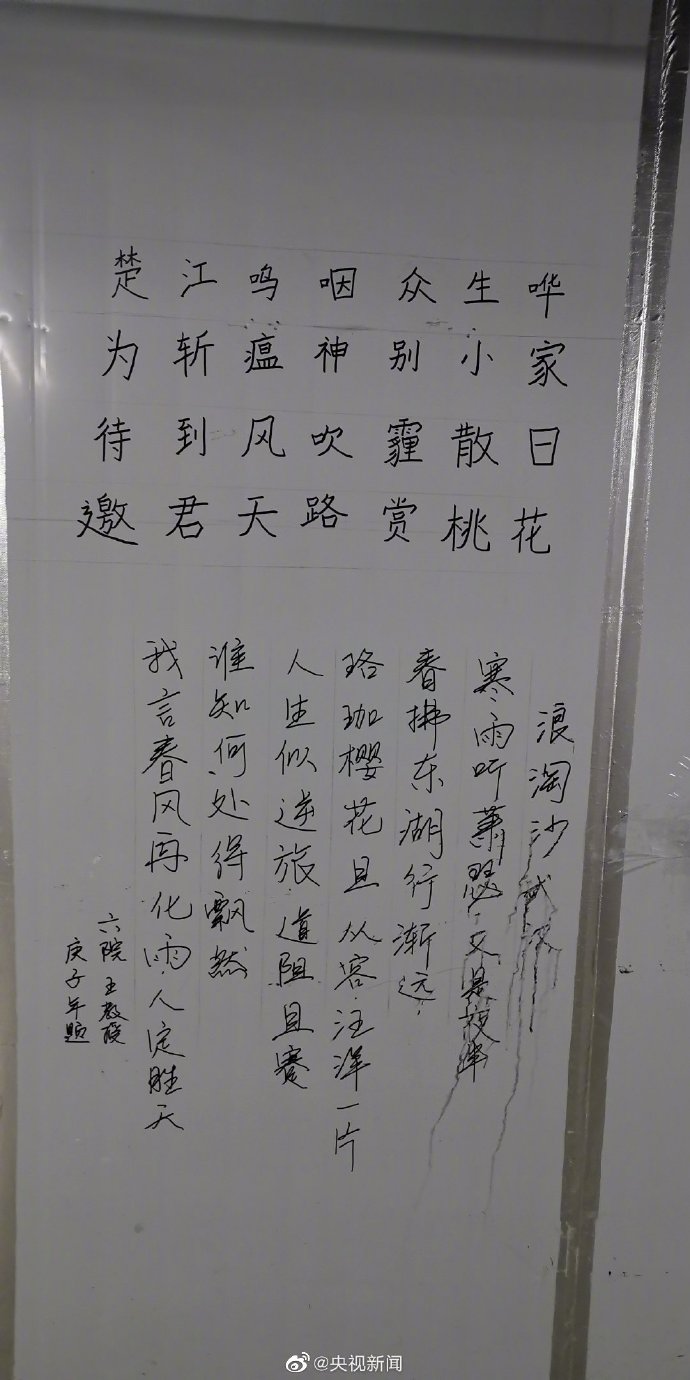 楚江鸣咽众生哗
为斩瘟神别小家
待到风吹霾散日
邀君天路赏桃花
浪淘沙 武汉
寒雨听萧瑟,又是
春拂东湖行渐远.
珞珈樱花且从容.汪洋一片
人生似逆旅.道阻且蹇
谁知何处得飘然
我言春风再化雨.人定胜天
六院 王教授
庚子年题
@央视新闻